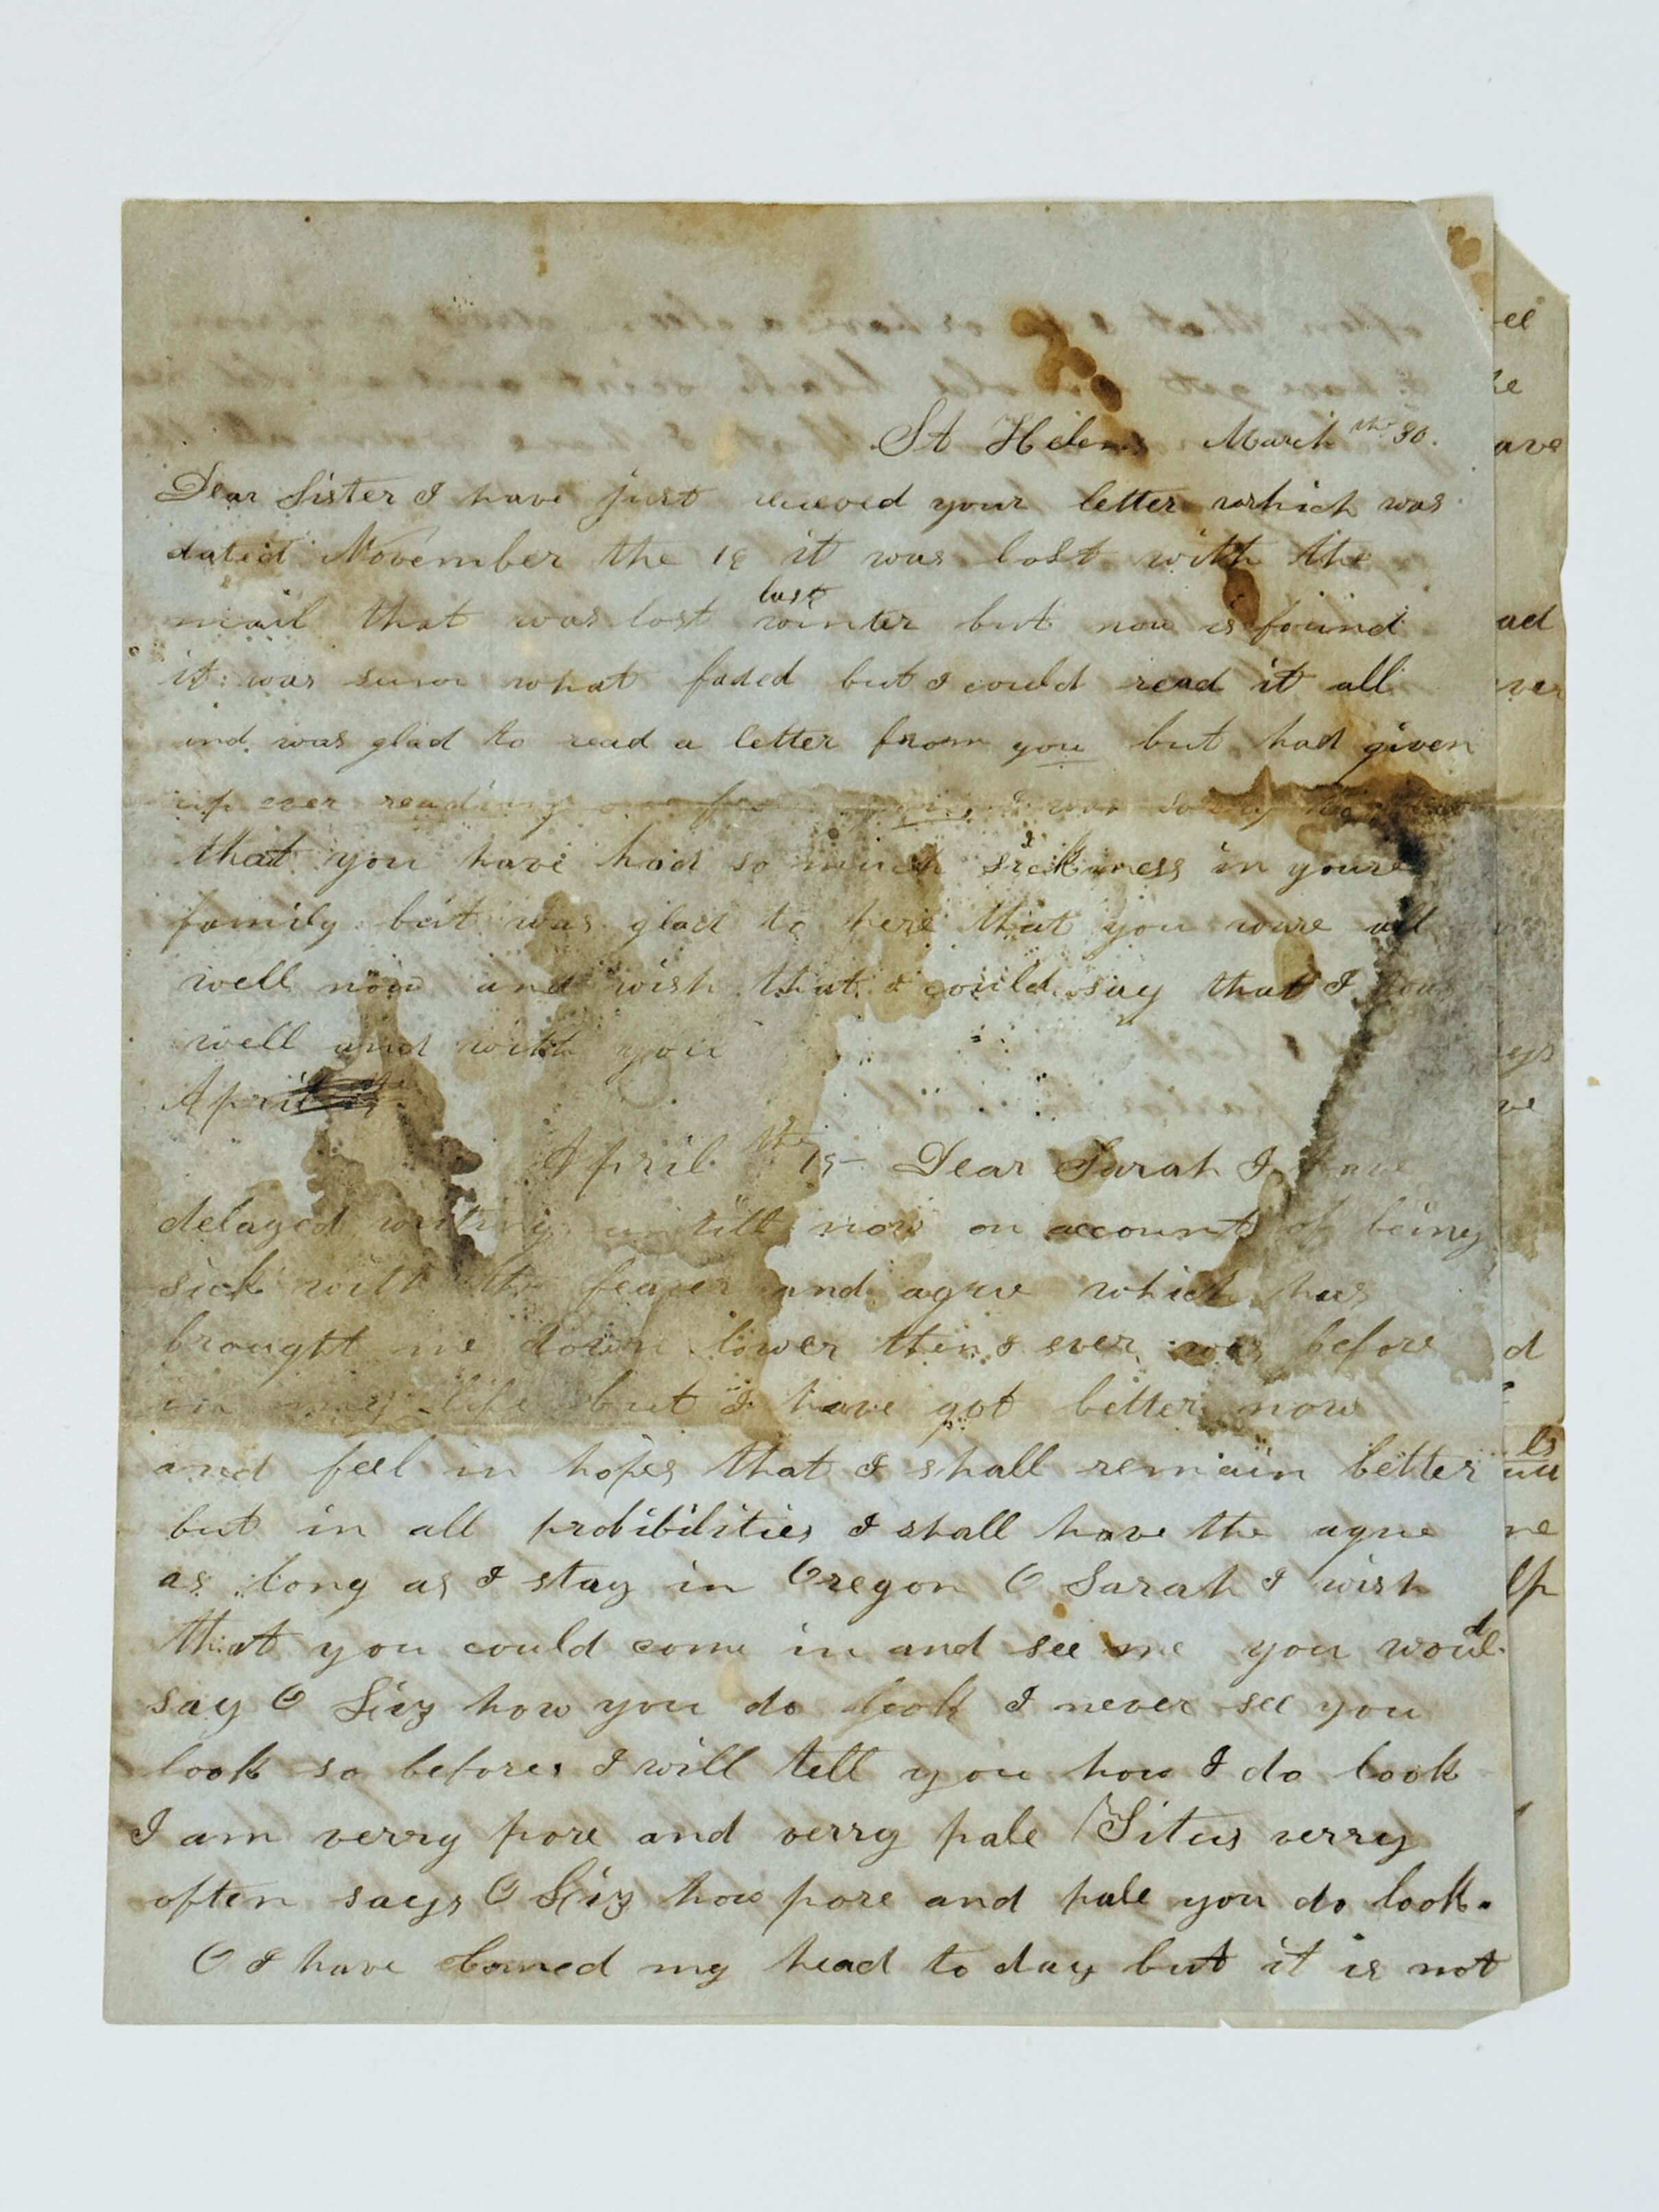 St Helens March th 30.
Dear Sister I have just recieved your letter which was
dated November the 18 it was lost with the
mail that was lost last winter but now is found
it was sum what faded but I could read it all
and was glad to read a letter from you but had given
up ever reading one from you I was sorry to
that you have had so much sickness in youre
family but was glad to here that you ware all
well now and wish that I could say that I was
well and with you
April
April th 15 Dear Sarah I have
delayed writing untill now on account of being
sick with the feaver and ague which has
brought me down lower then I ever was before
in my life but I have got better now
and feel in hopes that I shall remain better
but in all probibilities I shall have the ague
as long as I stay in Oregon O Sarah I wish
that you could come in and see me you would
say O Liz how you do look I never see you
look so before. I will tell you how I do look
I am verry pore and verry pale Titus verry
often says O Liz how pore and pale you do look.
O I have comed my head to day but it is not